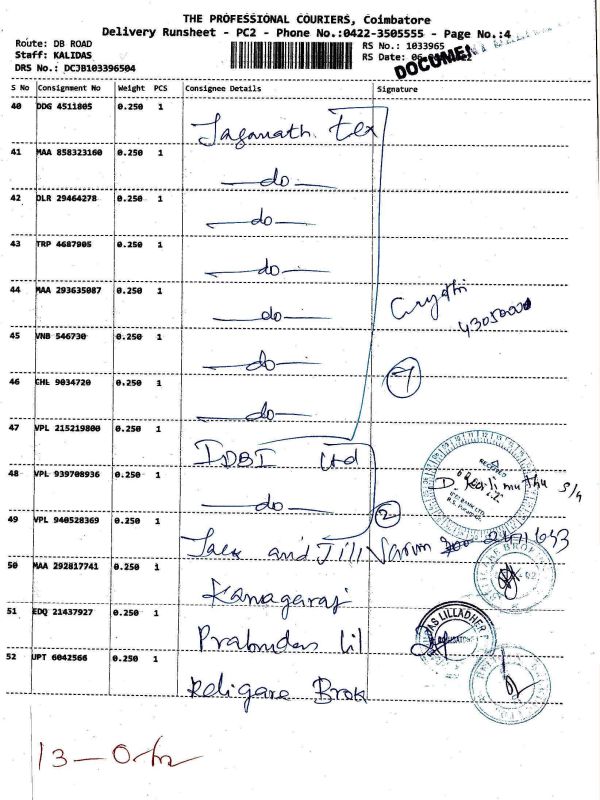 THE PROFESSIONAL COURIERS, Coimbatore
Delivery Runsheet - PC2 - Phone No.:0422-3505555 - Page No.:4
Route: DB ROAD
RS No.: 1033965
Staff: KALIDAS
RS Date: 06
DRS No.: DCJB103396504
S No Consignment No Weight PCS Consignee Details Signature
40 DDG 4511805 0.250 1 Jaganath Tex
41 MAA 858323160 0.250 1 do
42 DLR 29464278 0.250 1 do
43 TRP 4687905 0.250 1 do
44 MAA 293635087 0.250 1 do
45 VNB 546730 0.250 1 do
46 CHL 9034720 0.250 1 do
7
47 VPL 215219800 0.250 1 IDBI Ltd
48 VPL 939708936 0.250 1 do
2
49 VPL 940528369 0.250 1 Jack and Jill
50 MAA 292817741 0.250 1 Kanagaraj
51 EDQ 21437927 0.250 1 Prabudas Lil
52 UPT 6042566 0.250 1 Religare Brok